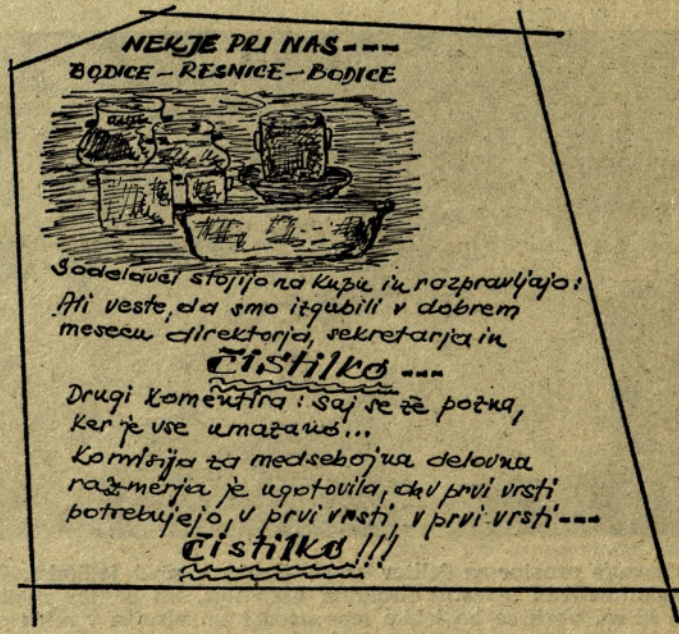 NEKJE PRI NAS ---
BODICE - RESNICE - BODICE
Sodelavci stojijo na kupu in razpravljajo:
Ali veste, da smo izgubili v dobrem
mesecu direktorja, sekretarja in
čistilko ---
Drugi komentira: saj se že pozna,
ker je vse umazano...
Komisija za medsebojna delovna
razmerja je ugotovila, da v prvi vrsti
potrebujejo, v prvi vrsti, v prvi vrsti ---
čistilko!!!